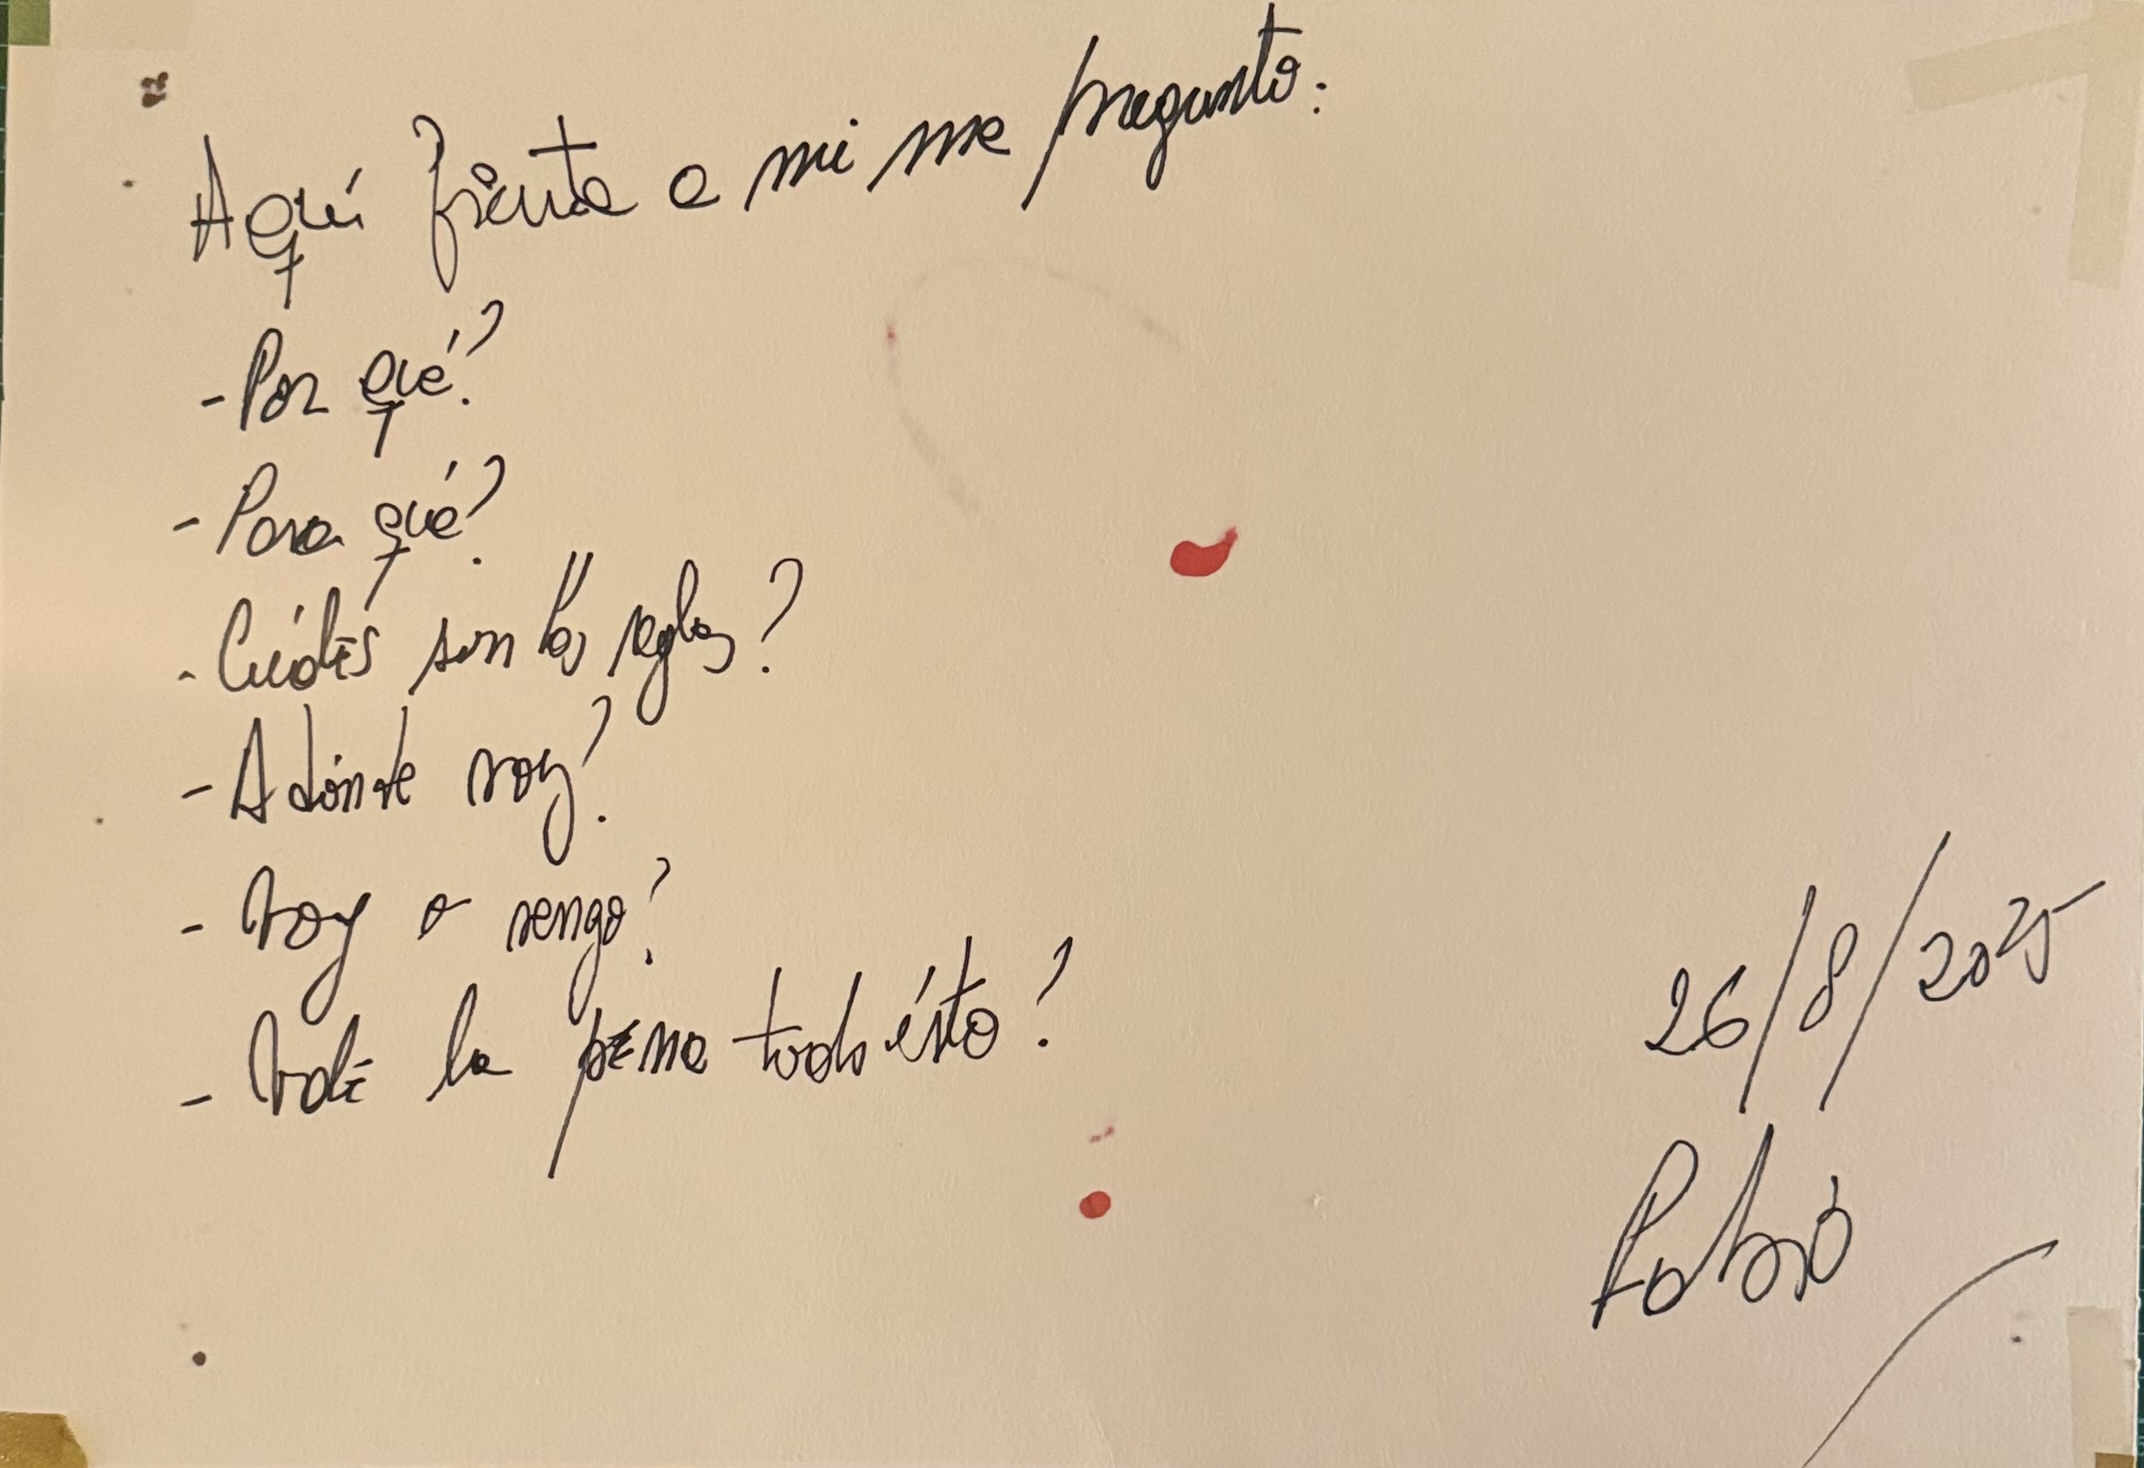 Aquí frente a mi me pregunto:
- Por qué?
- Para qué?
- Cuáles son las reglas?
- A dónde voy?
- Voy o vengo?
- Vale la pena todo ésto?
26/8/2025